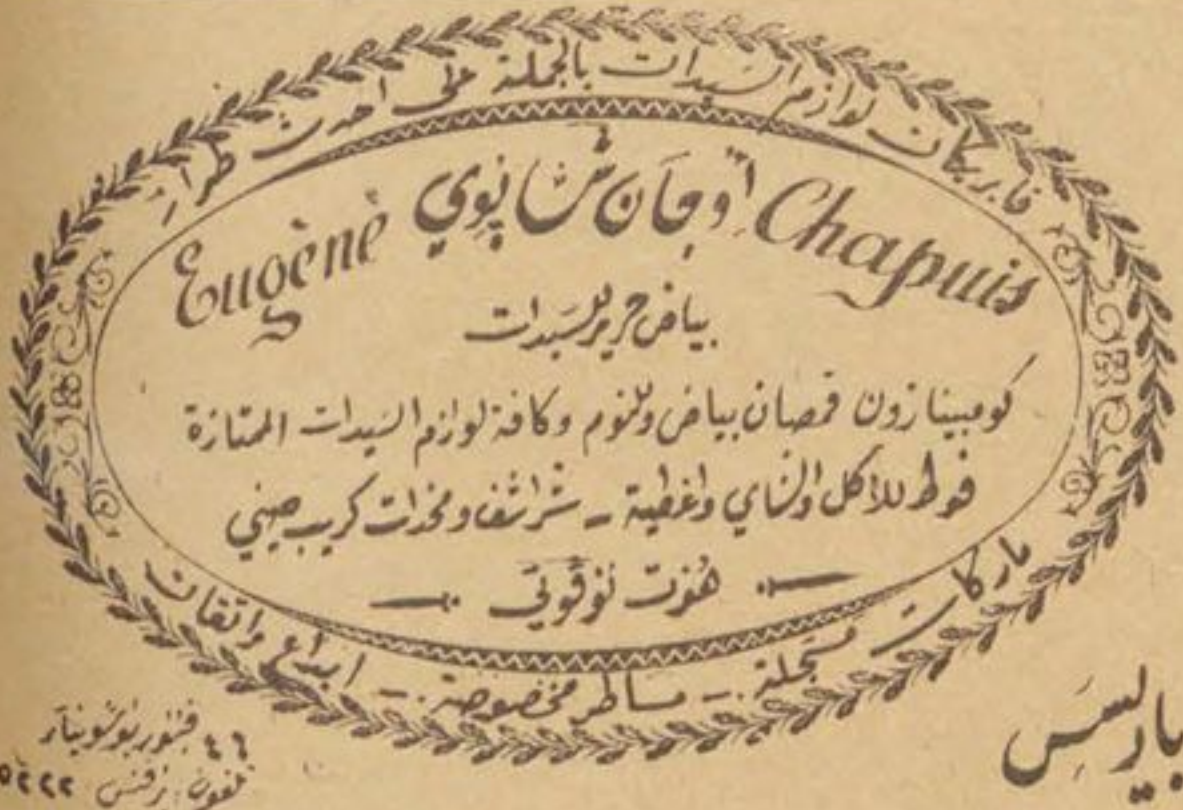 فابريكان لوازم السيدات بالجملة على احدث طراز
Eugène أوجان شاپوي Chapuis
بياض حرير للسيدات
كومبينازون قمصان بياض وللنوم وكافة لوازم السيدات الممتازة
فوط للأكل والشاي واغطية ـ شراشف ومخدات كريب صيني
هوت نوڤوتي
ماركات مسجلة ـ مساطر مخصوصة ـ ابداع واتقان
باريس
٤٦
تلفون